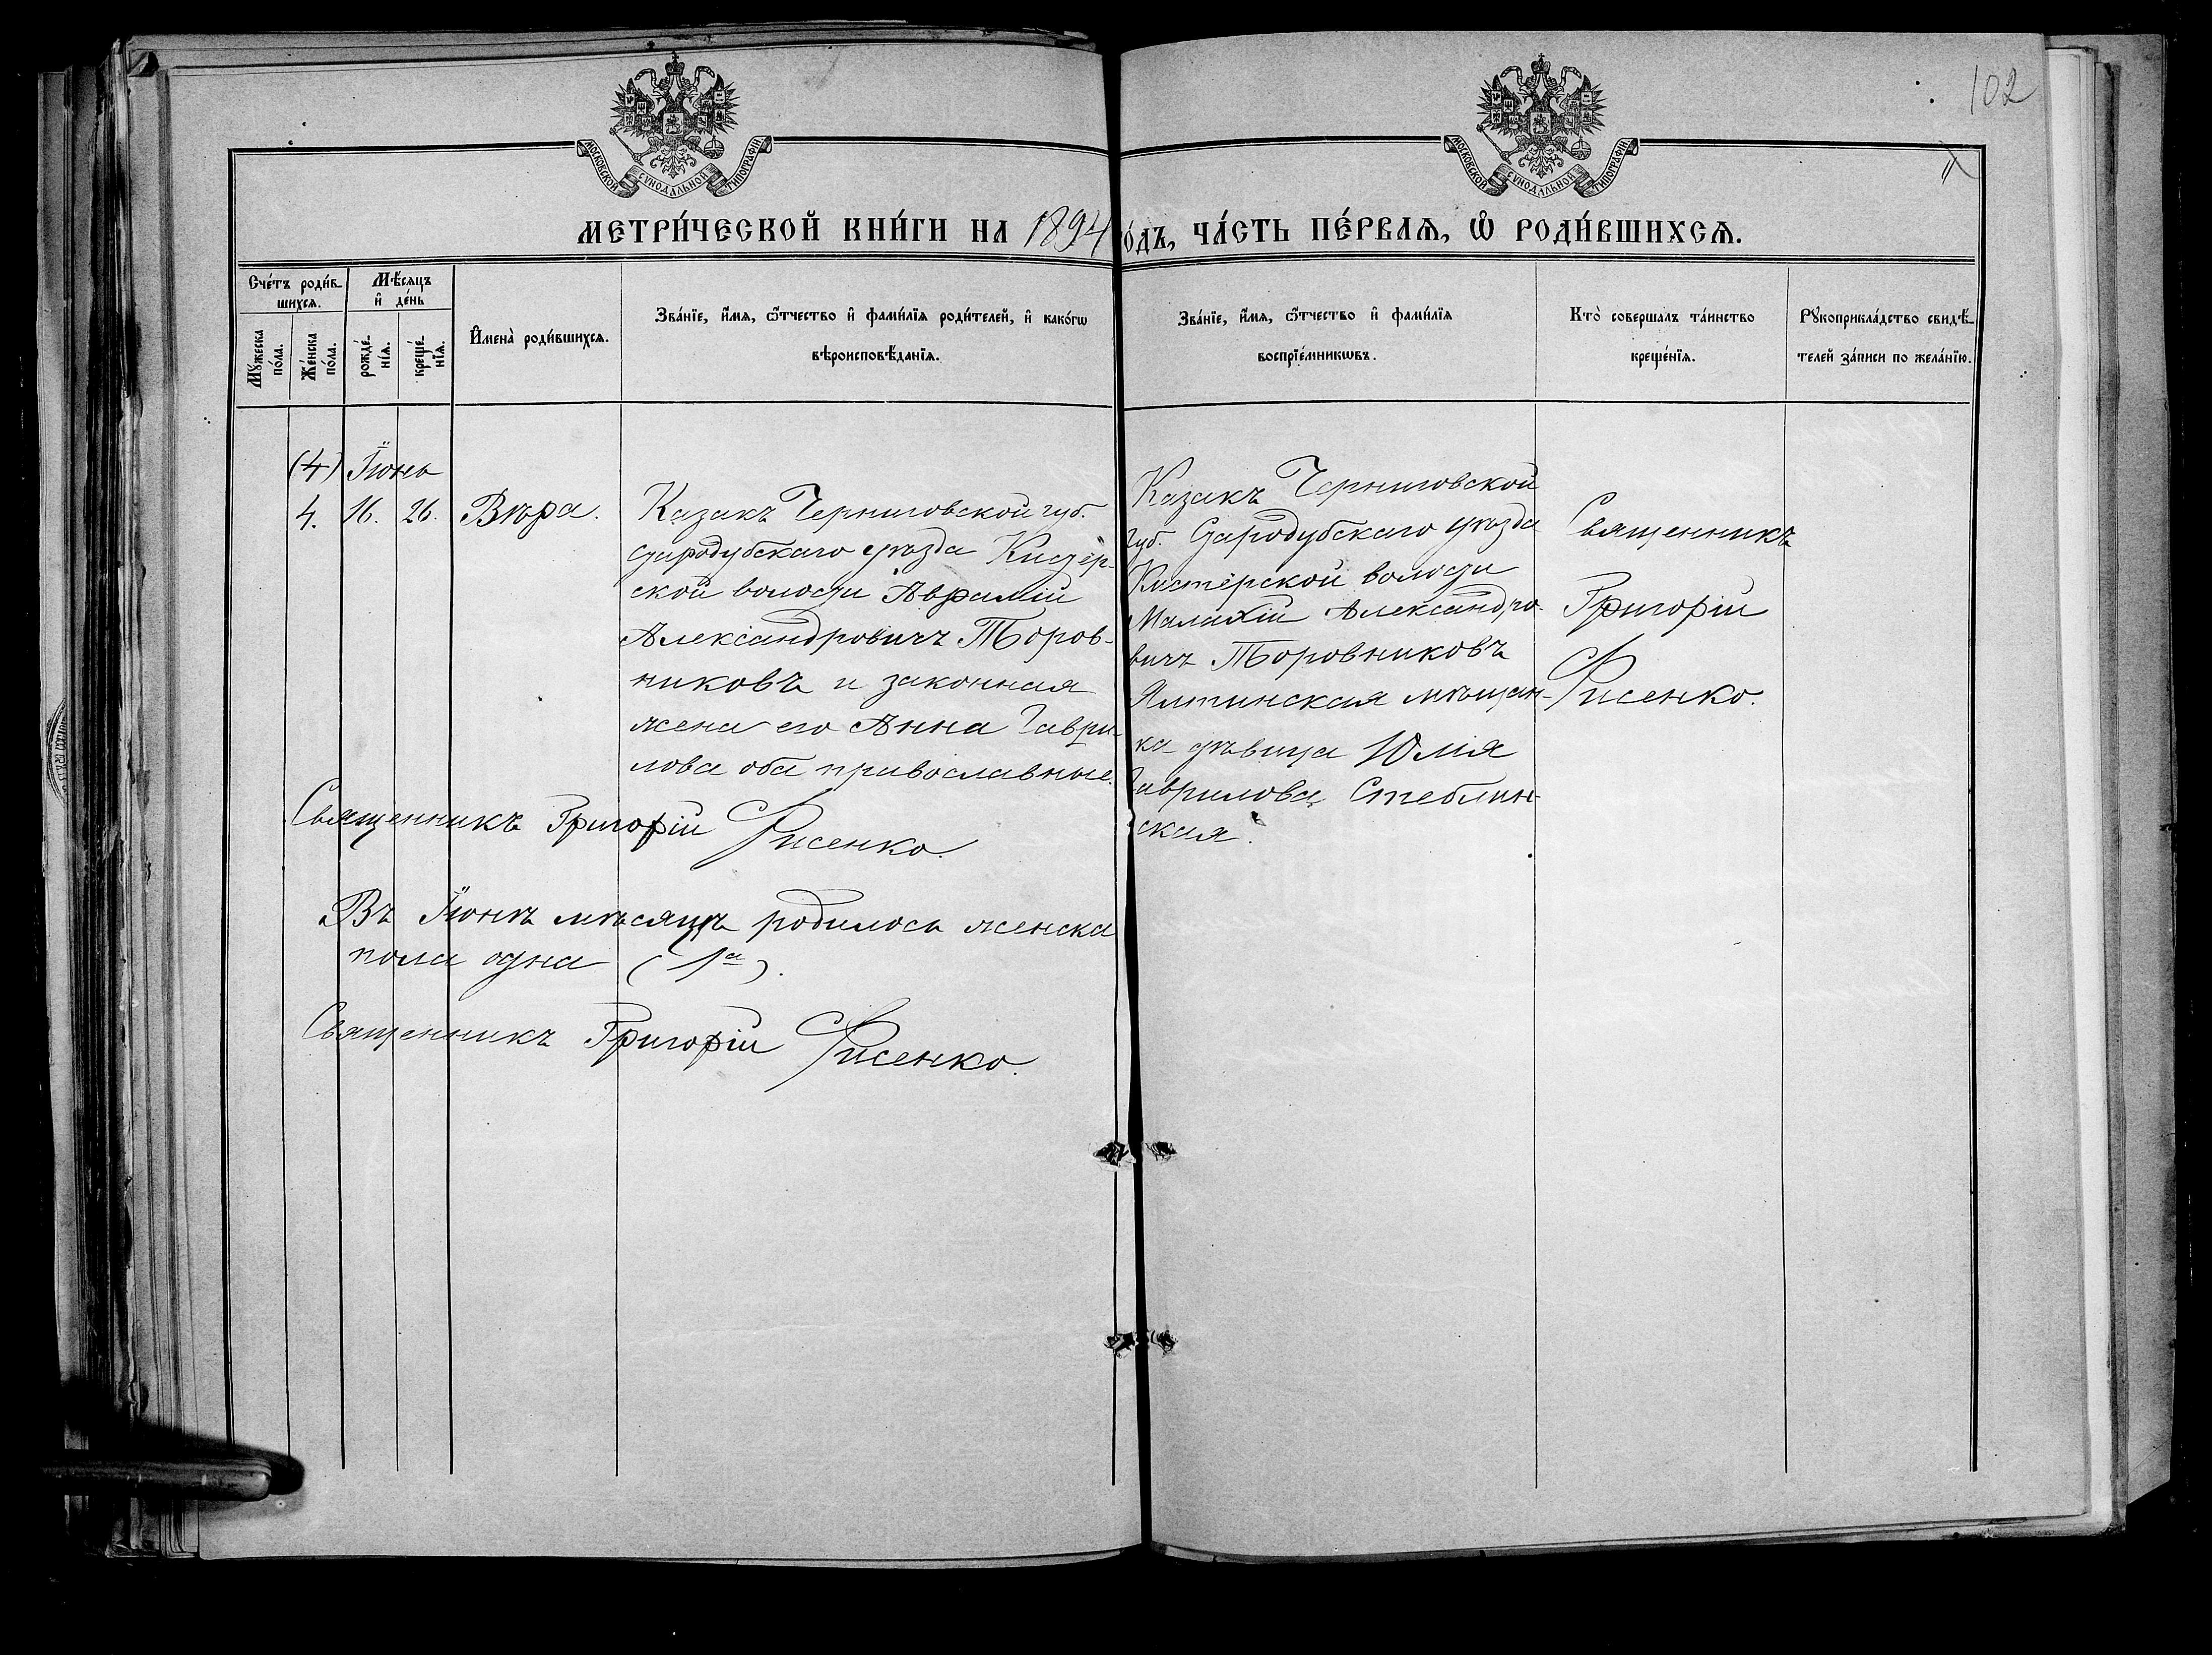 102
МОСКОВСКОЙ СѴНОДАЛЬНОЙ ТИПОГРАФІИ
МОСКОВСКОЙ СѴНОДАЛЬНОЙ ТИПОГРАФІИ
МЕТРИ́ЧЕСКОЙ КНИ́ГИ НА 1894 О́ДЪ, ЧА́СТЬ ПЕ́РВАѦ, Ѽ РОДИ́ВШИХСѦ.
Сче́тъ роди́в-
шихсѧ.
Мꙋ́жеска по́ла.
Же́нска по́ла.
Мѣ́сѧцъ
и҆ де́нь
рожде́-
нїѧ.
креще́-
нїѧ.
И҆мена̀ роди́вшихсѧ.
Зва́нїе, и҆́мѧ, ѻ҆́тчество и҆ фами́лїѧ роди́телей, и҆ како́гѡ
вѣроисповѣ́данїѧ.
Зва́нїе, и҆́мѧ, ѻ҆́тчество и҆ фами́лїѧ
воспрїе́мникѡвъ.
Кто̀ соверша́лъ та́инство
креще́нїѧ.
Рꙋкоприкла́дство свидѣ́-
телей за́писи по жела́нїю.
(4) Іюнь
4. 16. 26. Вѣра.
Казакъ Черниговской губ.
Стародубскаго уѣзда Кистер-
ской волости Аврамій
Александровичъ Торов-
никовъ и законная
жена его Анна Гаври-
лова оба православные.
Казакъ Черниговской
губ. Стародубскаго уѣзда
Кистерской волости
Малахій Александро-
вичъ Торовниковъ
Ялтинская мѣщан-
ка дѣвица Юлія
Гаврилова Стеблин-
ская.
Священникъ
Григорій
Фисенко.
Священникъ Григорій Фисенко.
Въ Іюнѣ мѣсяцѣ родилось женска
пола одна (1а).
Священникъ Григорій Фисенко.